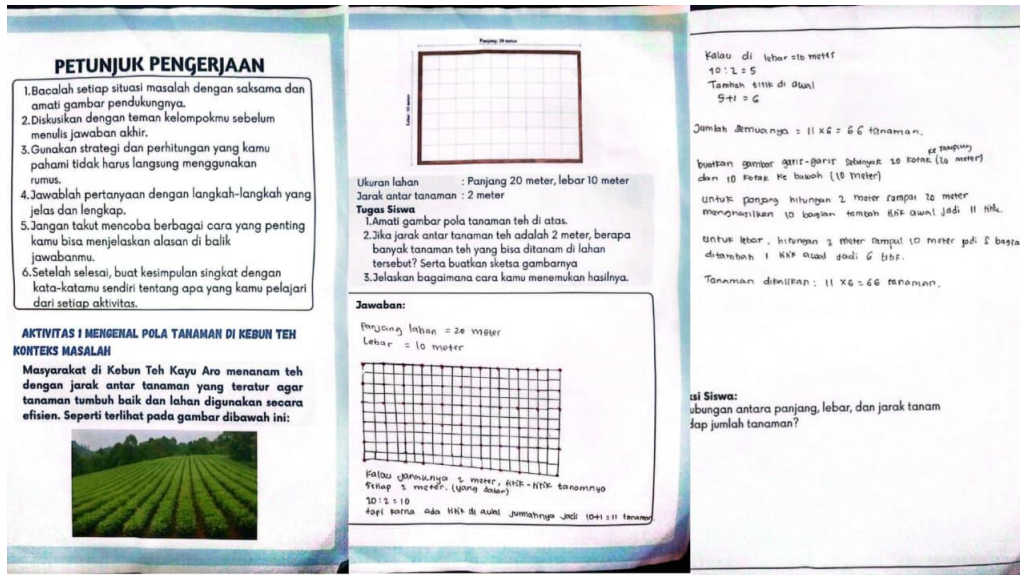 PETUNJUK PENGERJAAN
1.Bacalah setiap situasi masalah dengan saksama dan
amati gambar pendukungnya.
2.Diskusikan dengan teman kelompokmu sebelum
menulis jawaban akhir.
3.Gunakan strategi dan perhitungan yang kamu
pahami tidak harus langsung menggunakan
rumus.
4.Jawablah pertanyaan dengan langkah-langkah yang
jelas dan lengkap.
5.Jangan takut mencoba berbagai cara yang penting
kamu bisa menjelaskan alasan di balik
jawabanmu.
6.Setelah selesai, buat kesimpulan singkat dengan
kata-katamu sendiri tentang apa yang kamu pelajari
dari setiap aktivitas.
AKTIVITAS 1 MENGENAL POLA TANAMAN DI KEBUN TEH
KONTEKS MASALAH
Masyarakat di Kebun Teh Kayu Aro menanam teh
dengan jarak antar tanaman yang teratur agar
tanaman tumbuh baik dan lahan digunakan secara
efisien. Seperti terlihat pada gambar dibawah ini:
Panjang: 20 meter
Lebar: 10 meter
Ukuran lahan : Panjang 20 meter, lebar 10 meter
Jarak antar tanaman : 2 meter
Tugas Siswa
1.Amati gambar pola tanaman teh di atas.
2.Jika jarak antar tanaman teh adalah 2 meter, berapa
banyak tanaman teh yang bisa ditanam di lahan
tersebut? Serta buatkan sketsa gambarnya
3.Jelaskan bagaimana cara kamu menemukan hasilnya.
Jawaban:
Panjang lahan = 20 meter
Lebar = 10 meter
Kalau jaraknya 2 meter, titik-titik tanamnya
Setiap 2 meter. (yang dalar)
20 : 2 = 10
tapi karna ada titik di awal jumlahnya jadi 10+1 = 11 tanaman
Kalau di lebar = 10 meter
10 : 2 = 5
Tambah titik di awal
5+1 = 6
Jumlah semuanya = 11 x 6 = 66 tanaman.
buatkan gambar garis-garis sebanyak 20 kotak ke samping (20 meter)
dan 10 kotak ke bawah (10 meter)
untuk panjang hitungan 2 meter sampai 20 meter
menghasilkan 10 bagian tambah titik awal jadi 11 titik.
untuk lebar, hitungan 2 meter sampai 10 meter jadi 5 bagia
ditambah 1 titik awal jadi 6 titik.
Tanaman dihasilkan : 11 x 6 = 66 tanaman.
si Siswa:
ubungan antara panjang, lebar, dan jarak tanam
dap jumlah tanaman?